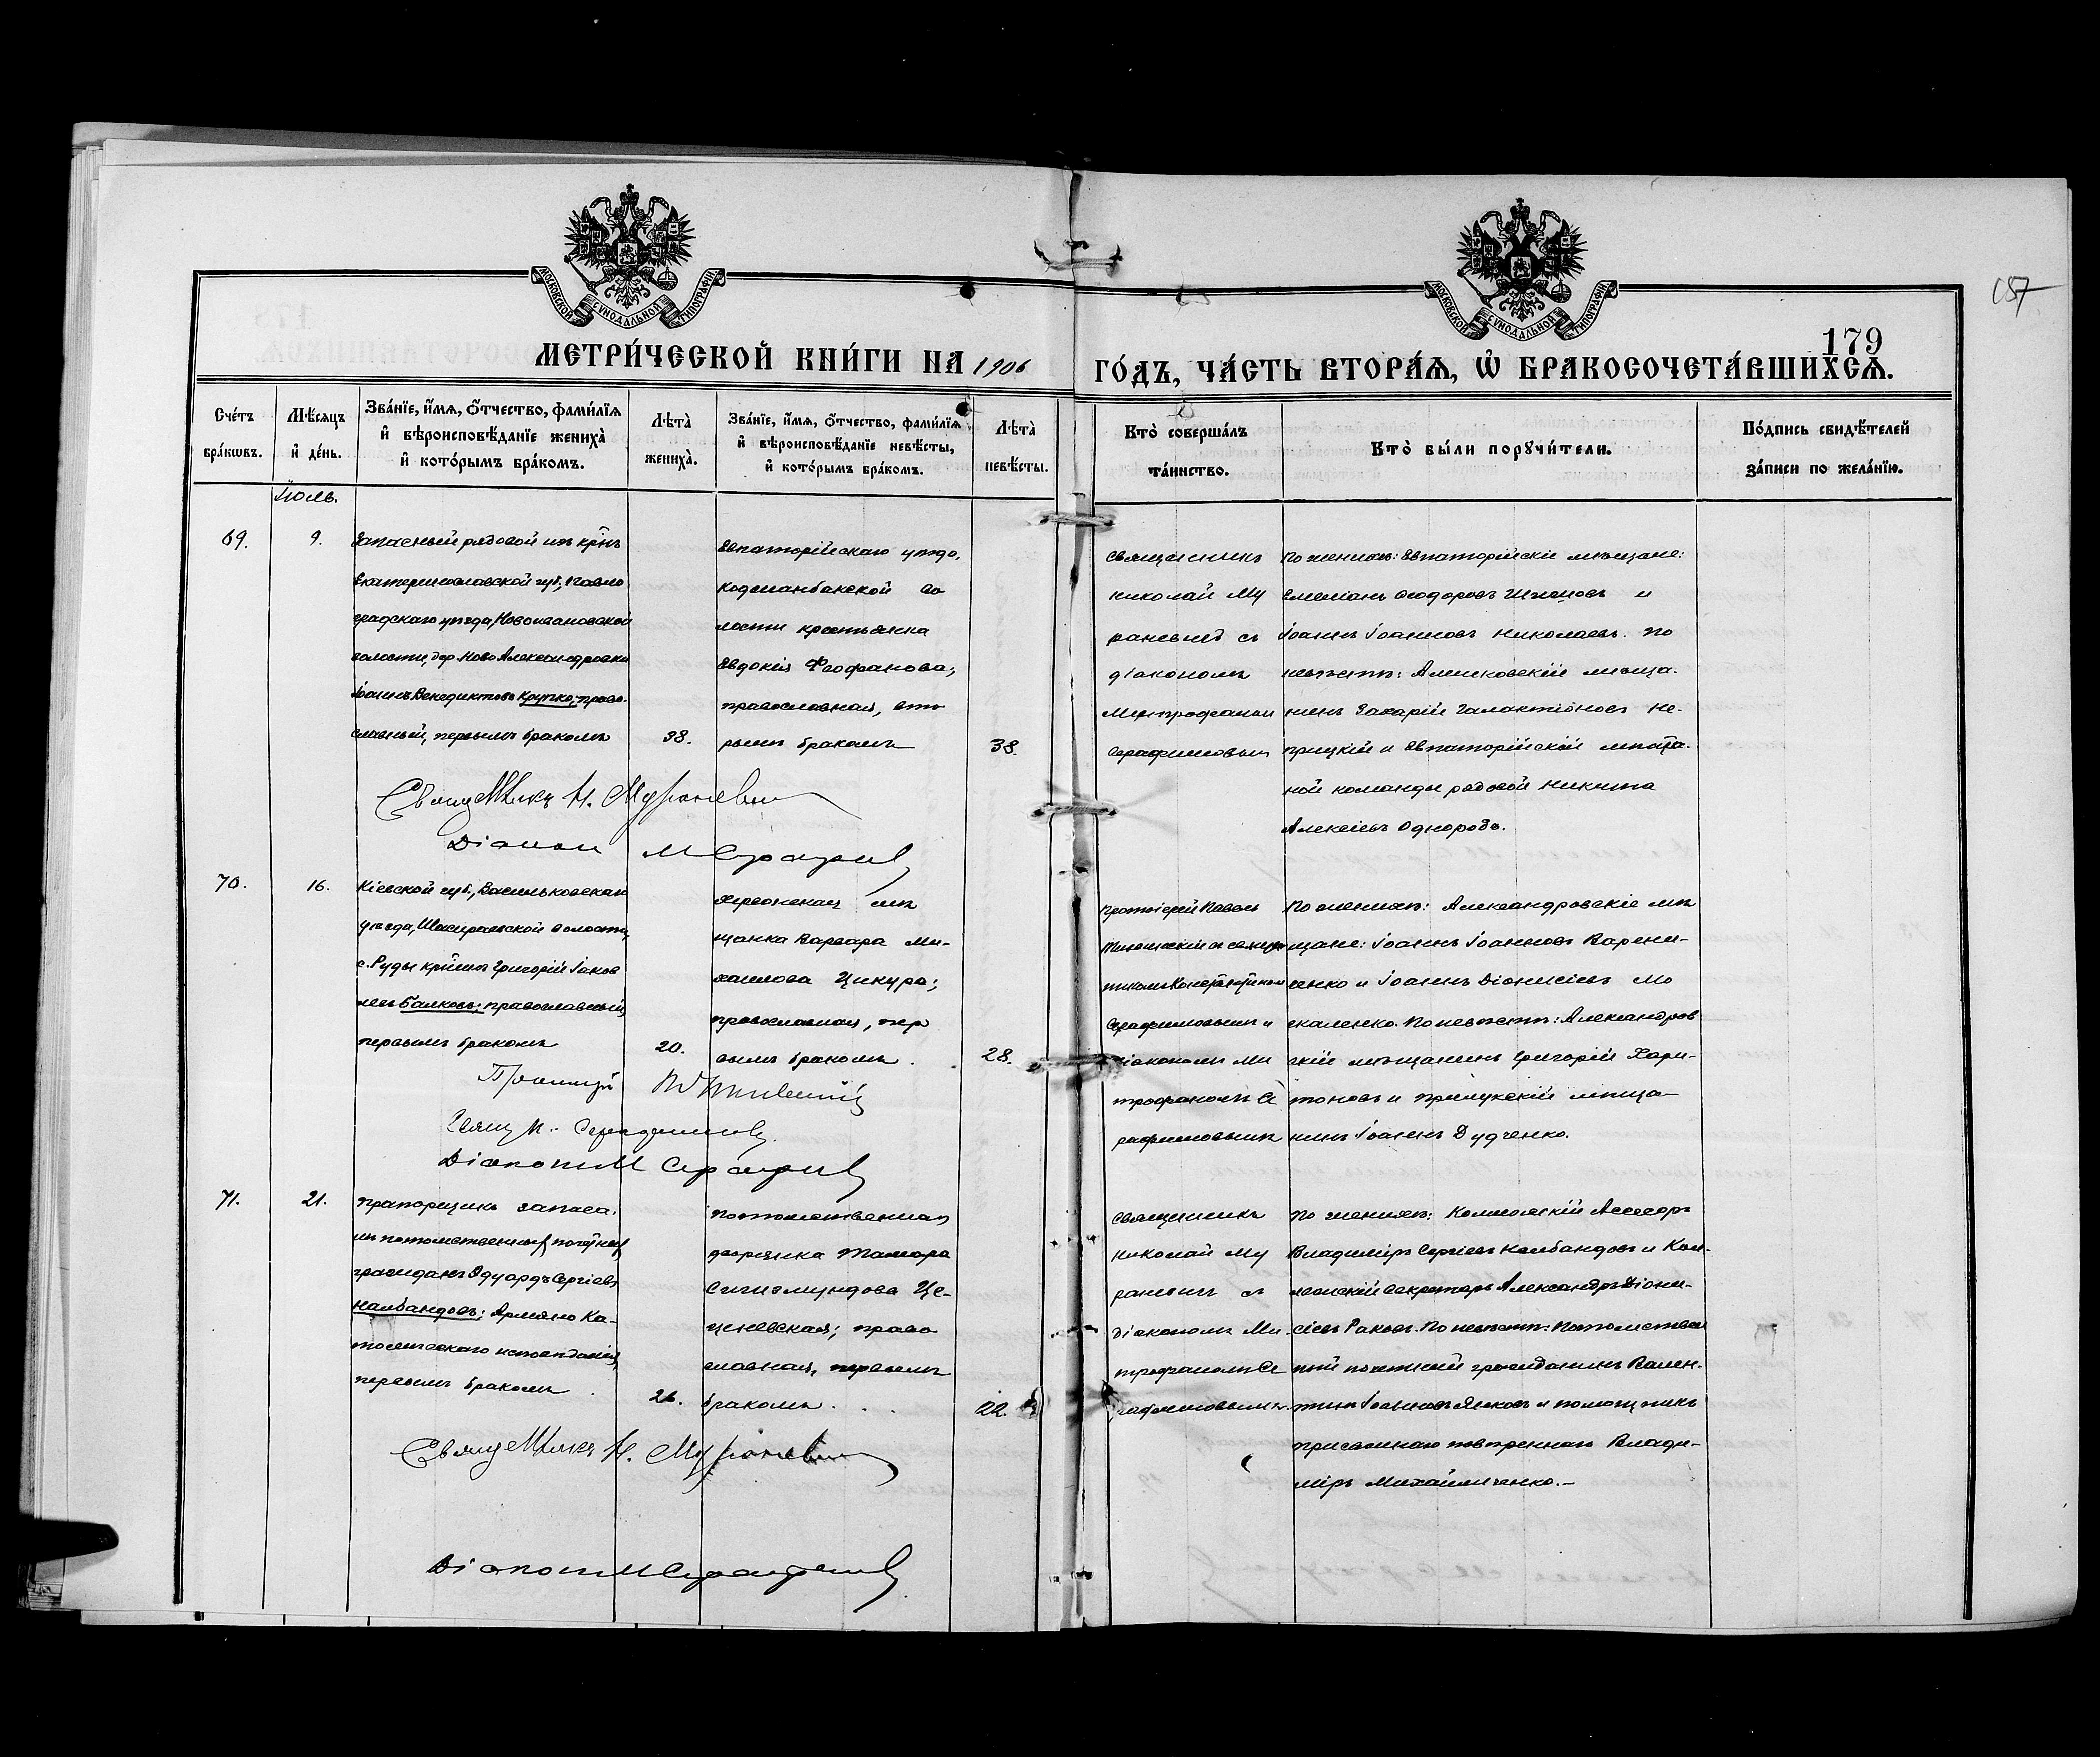 МОСКОВСКОЙ СѴНОДАЛЬНОЙ ТИПОГРАФІИ
МОСКОВСКОЙ СѴНОДАЛЬНОЙ ТИПОГРАФІИ
179
МЕТРИ́ЧЕСКОЙ КНИ́ГИ НА 1906
ГО́ДЪ, ЧА́СТЬ ВТОРА́Я, Ѡ БРАКОСОЧЕТА́ВШИХСЯ.
Сче́тъ бра́кѡвъ.
Мѣ́сяцъ и҆ де́нь.
Зва́нїе, и҆́мя, ѻ҆́тчество, фами́лїя
и҆ вѣроисповѣ́данїе жениха̀
и҆ кото́рымъ бра́комъ.
Лѣта̀ жениха̀.
Зва́нїе, и҆́мя, ѻ҆́тчество, фами́лїя
и҆ вѣроисповѣ́данїе невѣ́сты,
и҆ кото́рымъ бра́комъ.
Лѣта̀ невѣ́сты.
Кто̀ соверша́лъ та́инство.
Кто̀ бы́ли порꙋчи́тели.
По́дпись свидѣ́телей за́писи по жела́нїю.
Іюль.
69.
9.
Запасный рядовой изъ крнъ
Екатеринославской губ., Павло
градскаго уѣзда, Новоивановской
волости, дер. Ново Александровки
Іоаннъ Венедиктовъ Крупко; право-
славный, первымъ бракомъ
38.
Евпаторійскаго уѣзда,
во
лости крестьянка
Евдокія Феофанова;
православная, вто
рымъ бракомъ
38.
Священникъ
Николай Му
раневичъ съ
діакономъ
Митрофаномъ
Серафимовымъ
По женихѣ: Евпаторійскіе мѣщане:
Емеліанъ Ѳеодоровъ и
Іоаннъ Іоанновъ Николаевъ. По
невѣстѣ: Алешковскій мѣща-
нинъ Захарій Галактіоновъ Не-
прицкій и Евпаторійской мѣст-
ной команды рядовой Никита
Алексіевъ Однородъ.
Священникъ Н. Мураневичъ
Діаконъ М Серафимовъ
70.
16.
Кіевской губ., Васильковскаго
уѣзда, волости,
с. Руды крнинъ Григорій Іаков
левъ Балковъ; православный,
первымъ бракомъ
20.
Херсонская мѣ
щанка Варвара Ми-
хаилова Цикура;
православная, пер
вымъ бракомъ.
28.
Протоіерей Павелъ
Серафимовымъ и
діакономъ Ми
трофаномъ Се
рафимовымъ
По женихѣ: Александровскіе мѣ
щане: Іоаннъ Іоанновъ Варени-
ченко и Іоаннъ Діонисіевъ Мо
скаленко. По невѣстѣ: Александров
скій мѣщанинъ Григорій Хари-
тоновъ и Прилукскій мѣща-
нинъ Іоаннъ Дудченко.
Протоіерей
Свящ. К. Серафимовъ
Діаконъ М Серафимовъ
71.
21.
Прапорщикъ запаса,
изъ потомственныхъ почетныхъ
гражданъ Эдуардъ Сергіевъ
Налбандовъ; Армяно Ка-
толическаго исповѣданія,
первымъ бракомъ
26.
Потомственная
дворянка Тамара
Сигизмундова Це-
ценевская; право
славная, первымъ
бракомъ.
22.
Священникъ
Николай Му
раневичъ съ
діакономъ Ми-
трофаномъ Се
рафимовымъ
По женихѣ: Коллежскій Ассесоръ
Владиміръ Сергіевъ Налбандовъ и Кол-
лежскій секретарь Александръ Діони-
сіевъ Раковъ. По невѣстѣ: Потомствен
ный почетный гражданинъ Вален-
тинъ Іоанновъ и помощникъ
присяжнаго повѣреннаго Влади-
міръ Михайличенко.-
Священникъ Н. Мураневичъ
Діаконъ М Серафимовъ